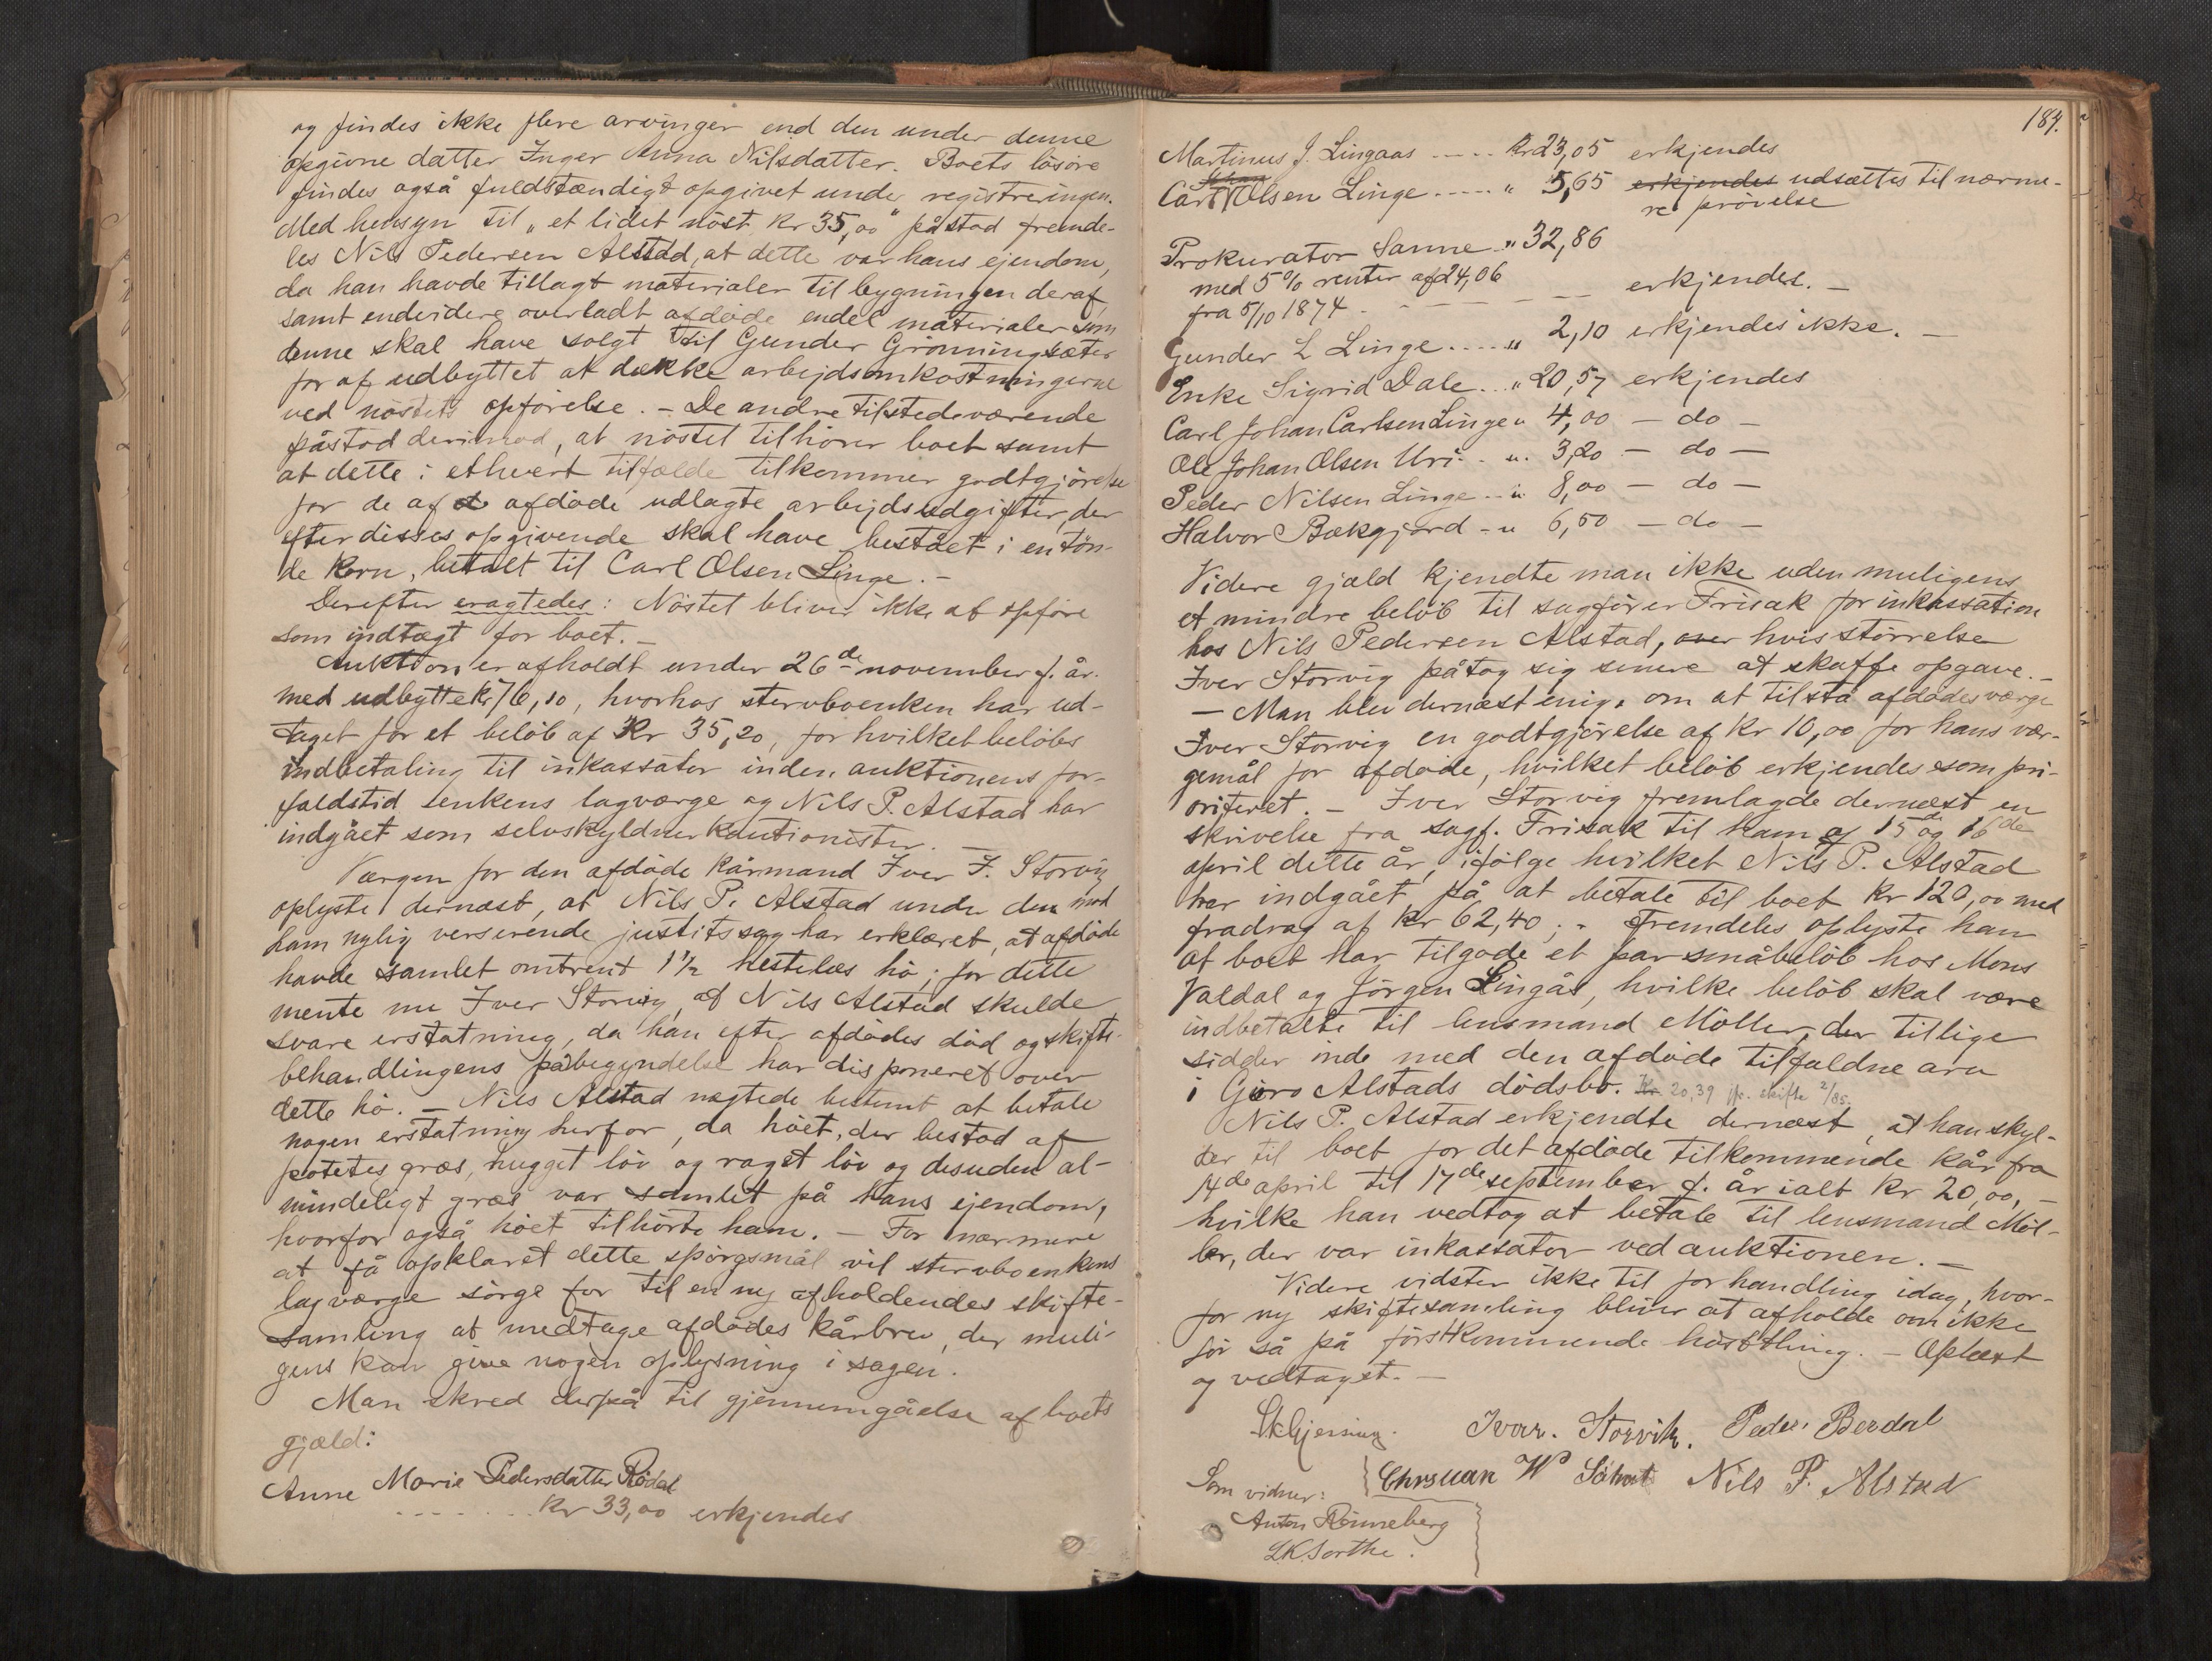 og findes ikke flere arvinger end den under denne
opgivne datter Inger Anna Nilsdatter. Boets løsøre
findes også fuldstændigt opgivet under registreringen.
Med hensyn til „et lidet nöst kr 35,00" påstod fremde-
les Nils Pedersen Alstad, at dette var hans ejendom,
da han havde tillagt materialer til bygningen deraf,
samt endvidere overladt afdøde endel materialer som
denne skal have solgt til Gunder Grönningsæter
for af udbyttet at dække arbejdsomkostningerne
ved nöstets opförelse. – De andre tilstedeværende
påstod derimod, at nöstet tilhörer boet samt
at dette i ethvert tilfælde tilkommer godtgjörelse
for de af afdöde udlagte arbejdsudgifter, der
efter disses opgivende skal have bestået i en tön-
de korn, betalt til Carl Olsen Linge. –
Derefter eragtedes: Nöstet bliver ikke at opføre
som indtægt for boet. –
Auktion er afholdt under 26de november f. år.
med udbytte kr 76,10, hvorhos stervboenken har ud-
taget for et beløb af Kr 35,20, for hvilket beløbs
indbetaling til inkassator inden auktionens for-
faldstid enkens lagværge og Nils P. Alstad har
indgået som selvskyldnerkautionister. –
Værgen for den afdøde kårmand Iver J. Storvig
oplyste dernæst, at Nils P. Alstad under den mod
ham nylig verserende justitssag har erklæret, at afdöde
havde samlet omtrent 1½ hestelæs hö; for dette
mente nu Iver Storvig, at Nils Alstad skulde
svare erstatning, da han efter afdödes död og skifte-
behandlingens påbegyndelse har disponeret over
dette hö. – Nils Alstad nægtede bestemt at betale
nogen erstatning herfor, da höet, der bestod af
potetes græs, hugget löv og raget löv og desuden al-
mindeligt græs var samlet på hans ejendom,
hvorfor også höet tilhörte ham. – For nærmere
at få opklaret dette spörgsmål vil stervboenkens
lagværge sörge for til en ny afholdendes skifte-
samling at medtage afdödes kårbrev, der muli-
gens kan give nogen oplysning i sagen.
Man skred derpå til gjennemgåelse af boets
gjæld:
Anne Marie Pedersdatter Rödal
. . . . . . . Kr 33,00 erkjendes
184.
Martinus J. Lingaas ..... Kr 23,05 erkjendes
Carl Olsen Linge ..... " 5,65 erkjendes udsættes til nærme-
re prövelse
Prokurator Sanne " 32,86
med 5% renter af 24,06
fra 5/10 1874 . – – – – – erkjendes. –
Gunder L Linge .... " 2,10 erkjendes ikke. –
Enke Sigrid Dale ... " 20,57 erkjendes
Carl Johan Carlsen Linge " 4,00 – do –
Ole Johan Olsen Uri - " 3,20 – do –
Peder Nilsen Linge - " 8,00 – do –
Halvor Bækgjærd - " 6,50 – do –
Videre gjæld kjendte man ikke uden muligens
et mindre belöb til sagförer Frisak for inkassation
hos Nils Pedersen Alstad, over hvis störrelse
Iver Storvig påtog sig senere at skaffe opgave. –
– Man blev dernæst enig om at tilstå afdödes værge
Iver Storvig en godtgjörelse af Kr 10,00 for hans vær-
gemål for afdöde, hvilket belöb erkjendes som pri-
oriteret. – Iver Storvig fremlagde dernæst en
skrivelse fra sagf. Frisak til ham af 15de og 16de
april dette år, ifölge hvilket Nils P. Alstad
har indgået på at betale til boet Kr 120,00 med
fradrag af Kr 62,40; - Fremdeles oplyste han
at boet har tilgode et par småbelöb hos Mons
Valdal og Jörgen Lingås, hvilke belöb skal være
indbetalte til lensmand Möller, der tillige
sidder inde med den afdöde tilfaldne arv
i Guro Alstads dödsbo. Kr. 20,39 jfr. skifte 2/85.
Nils P. Alstad erkjendte dernæst, at han skyl-
der til boet for det afdöde tilkommende kår fra
14de april til 17de september f. år ialt Kr 20,00, –
hvilke han vedtog at betale til lensmand Möl-
ler, der var inkassator ved auktionen. –
Videre vidstes ikke til forhandling idag, hvor-
for ny skiftesamling bliver at afholde om ikke
för så på förstkommende höstthing. – Oplæst
og vedtaget. –
Ivar. Storvik. Peder Berdal
Som vidner: Chrstian W Nils P. Alstad
Anton Rönneberg
L.K. Sorthe.